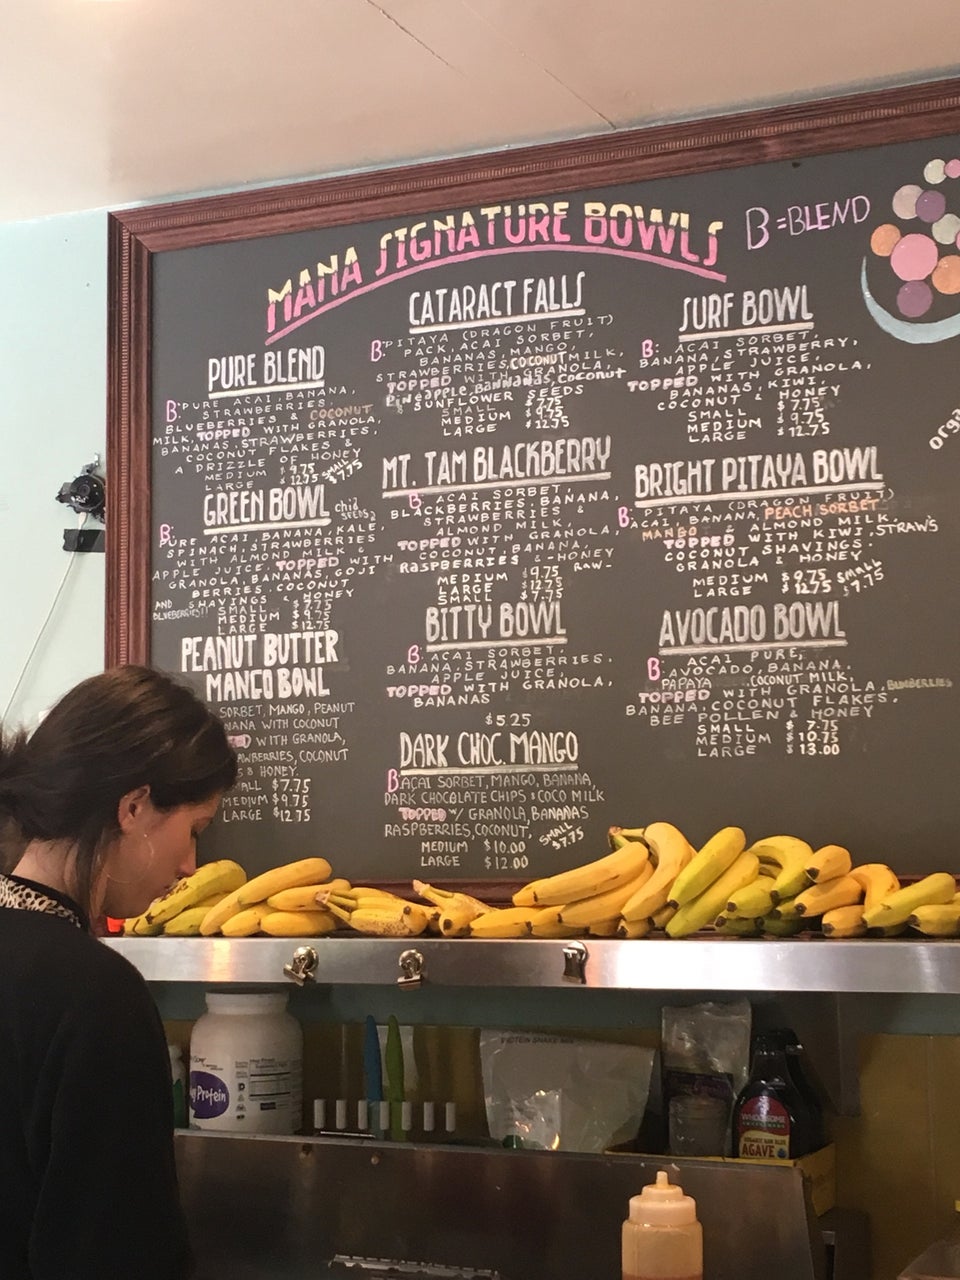 MANA SIGNATURE BOWLS
B=BLEND
PURE BLEND
B: PURE ACAI, BANANA,
STRAWBERRIES,
BLUEBERRIES COCONUT
MILK, TOPPED WITH GRANOLA,
BANANAS, STRAWBERRIES,
COCONUT FLAKES &
A DRIZZLE OF HONEY
MEDIUM $9.75
LARGE $12.75
SMALL $7.75
GREEN BOWL
chia SEEDS
B: PURE ACAI, BANANA, KALE,
SPINACH, STRAWBERRIES
WITH ALMOND MILK &
APPLE JUICE, TOPPED WITH
GRANOLA, BANANAS, GOJI
BERRIES, COCONUT
SHAVINGS HONEY
AND BLUEBERRIES!!
SMALL $7.75
MEDIUM $9.75
LARGE $12.75
PEANUT BUTTER
MANGO BOWL
SORBET, MANGO, PEANUT
NANA WITH COCONUT
WITH GRANOLA,
AWBERRIES, COCONUT
S & HONEY.
ALL $7.75
MEDIUM $9.75
LARGE $12.75
CATARACT FALLS
B: PITAYA (DRAGON FRUIT)
PACK, ACAI SORBET,
BANANAS, MANGO,
STRAWBERRIES, COCONUT MILK,
TOPPED WITH GRANOLA,
Pineapple, Bannanas, Coconut
SUNFLOWER SEEDS
SMALL $7.75
MEDIUM $9.75
LARGE $12.75
MT. TAM BLACKBERRY
B: ACAI SORBET,
BLACKBERRIES, BANANA,
STRAWBERRIES &
ALMOND MILK,
TOPPED WITH GRANOLA,
COCONUT, BANANA,
RASPBERRIES & HONEY
RAW-
MEDIUM $9.75
LARGE $12.75
SMALL $7.75
BITTY BOWL
B: ACAI SORBET,
BANANA, STRAWBERRIES,
APPLE JUICE,
TOPPED WITH GRANOLA,
BANANAS
$5.25
DARK CHOC. MANGO
B: ACAI SORBET, MANGO, BANANA,
DARK CHOCOLATE CHIPS & COCO MILK
TOPPED W/ GRANOLA, BANANAS
RASPBERRIES, COCONUT,
SMALL $7.75
MEDIUM $10.00
LARGE $12.00
SURF BOWL
B: ACAI SORBET,
BANANA, STRAWBERRY,
APPLE JUICE,
TOPPED WITH GRANOLA,
BANANAS, KIWI,
COCONUT & HONEY
SMALL $7.75
MEDIUM $9.75
LARGE $12.75
BRIGHT PITAYA BOWL
B: PITAYA (DRAGON FRUIT)
ACAI, BANANA, PEACH SORBET
MANGO & ALMOND MILK,
TOPPED WITH KIWI, STRAW'S
COCONUT SHAVINGS,
GRANOLA & HONEY.
MEDIUM $9.75
LARGE $12.75
SMALL $7.75
AVOCADO BOWL
B: ACAI PURE,
AVOCADO, BANANA,
PAPAYA COCONUT MILK,
TOPPED WITH GRANOLA, BLUEBERRIES
BANANA, COCONUT FLAKES,
BEE POLLEN & HONEY
SMALL $7.75
MEDIUM $10.75
LARGE $13.00
orga
Protein
PROTEIN SHAKE MIX
WHOLESOME
ORGANIC RAW BLUE
AGAVE